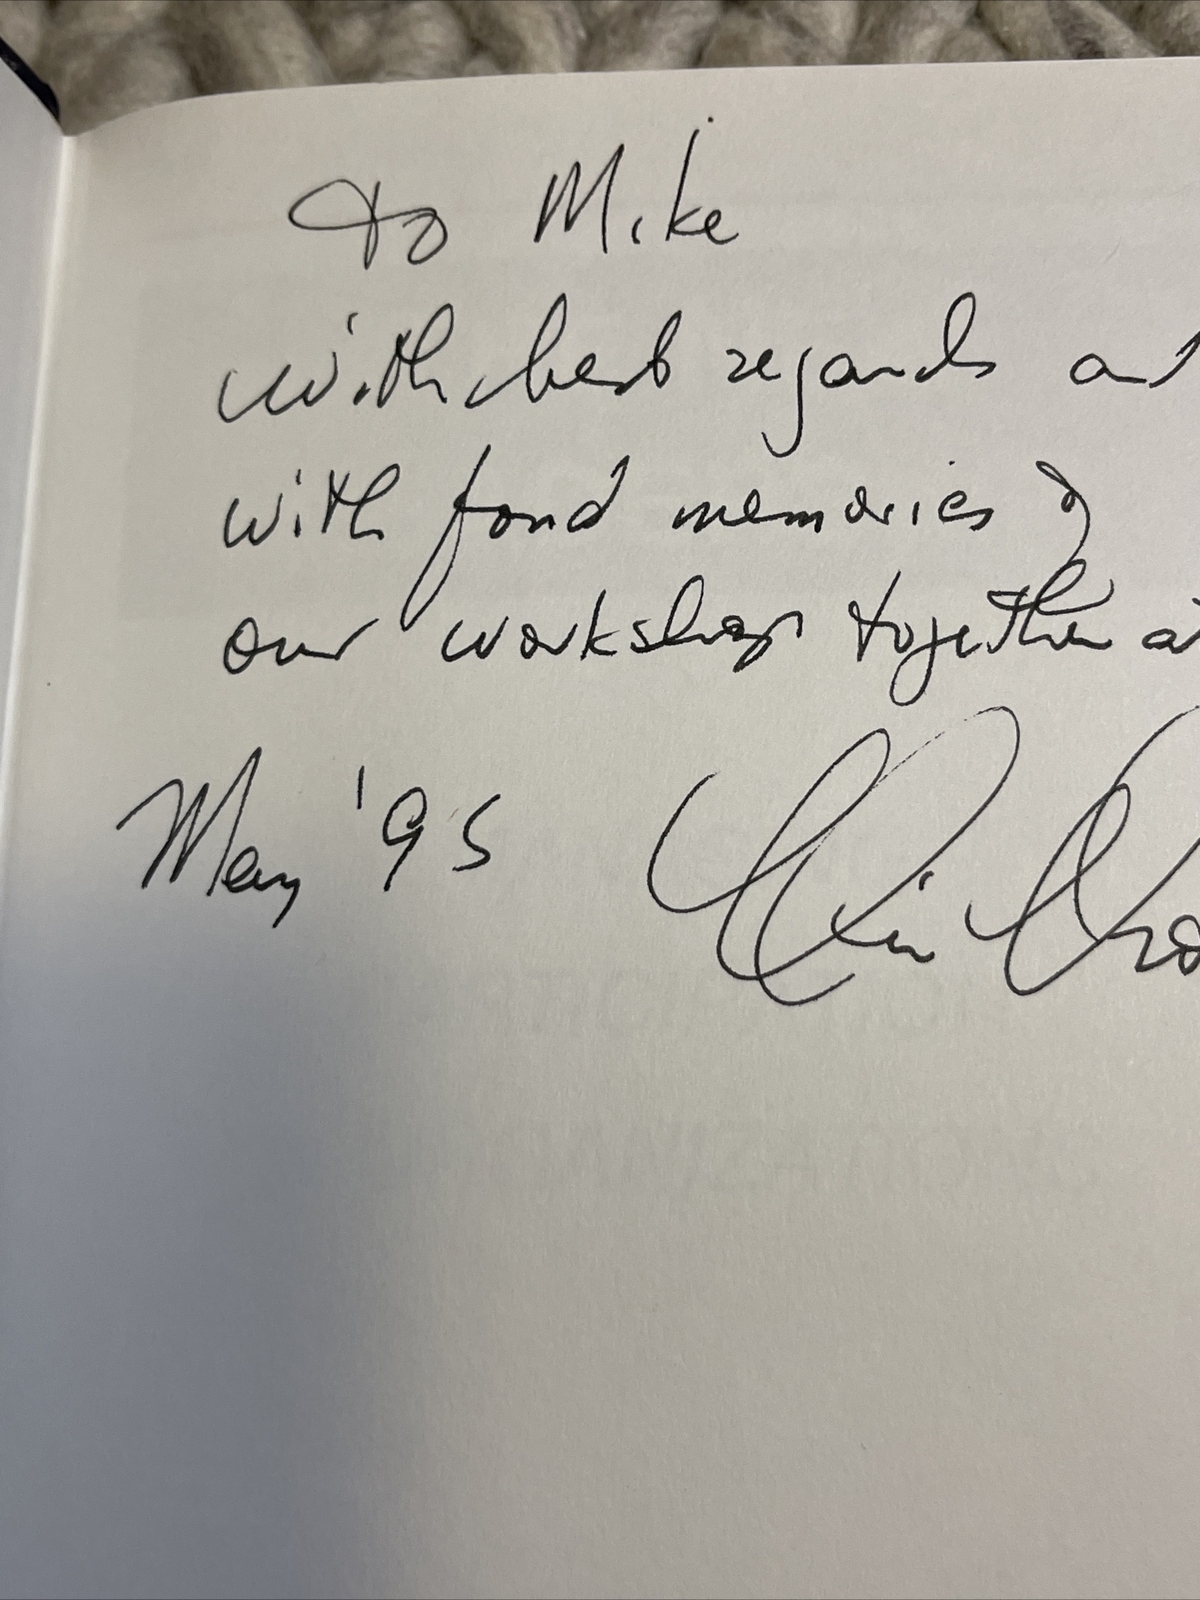 To Mike
with best regards and
with fond memories of
our workshop together at
May '95